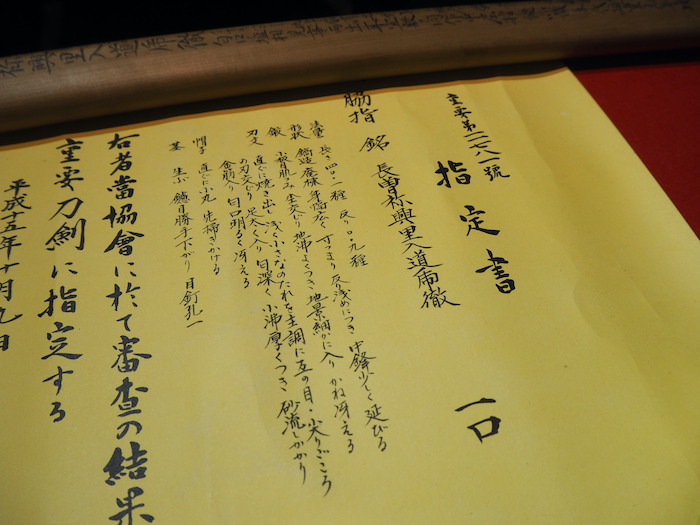 重要第一一七八一號
指定書
一口
脇指 銘 長曽祢興里入道乕徹
法量 長さ 四〇・二糎 反り 〇・九糎
形状 鎬造 庵棟 身幅広く 寸つまり 反り浅めにつき 中鋒少しく延びる
鍛 小板目肌 杢交り 地沸よくつき 地景細かに入り かね冴える
刃文 直ぐに焼き出し 浅く小さなのたれを主調に互の目・尖りごころ
の刃交じり 足太く入り 匂深く 小沸厚くつき 砂流しかかり
金筋入り 匂口明るく冴える
帽子 直ぐに小丸 先掃きかける
茎 生ぶ 鑢目勝手下がり 目釘孔一
右者當協會に於て審査の結果
重要刀剣に指定する
平成十五年十月九日